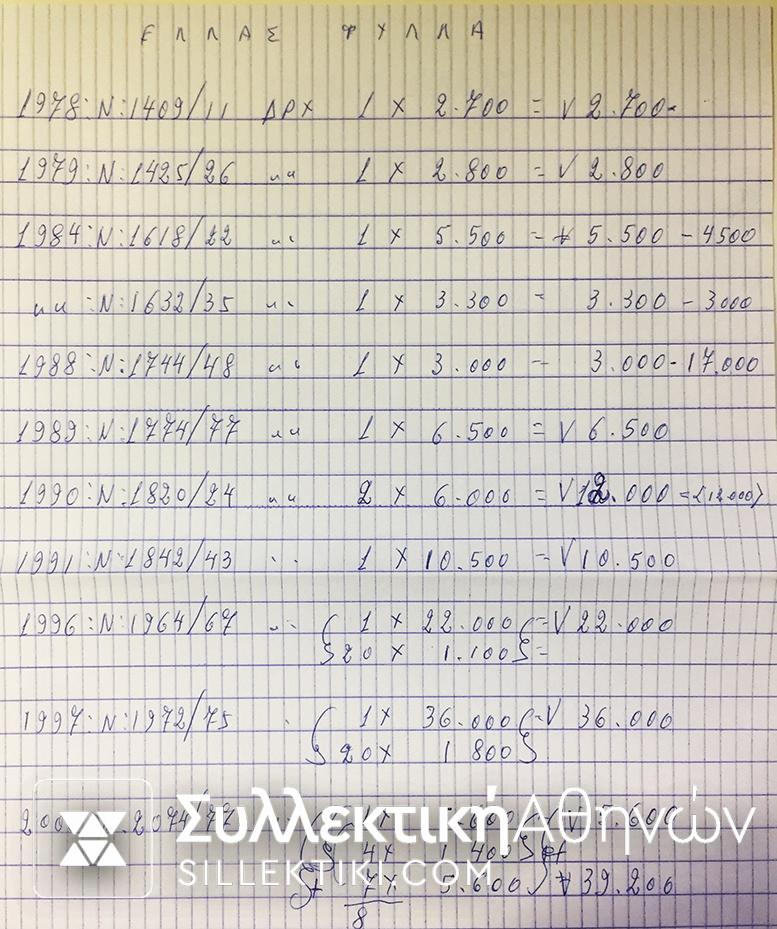 ΕΛΛΑΣ ΦΥΛΛΑ
1978:N:1409/11 ΔΡΧ 1 × 2.700 = V 2.700-
1979:N:1425/26 〃 1 × 2.800 = V 2.800
1984:N:1618/22 〃 1 × 5.500 = 5.500 - 4500
〃 :N:1632/35 〃 1 × 3.300 = 3.300 - 3000
1988:N:1744/48 〃 1 × 3.000 = 3.000 - 17.000
1989:N:1774/77 〃 1 × 6.500 = V 6.500
1990:N:1820/24 〃 2 × 6.000 = V 12.000 = (12.000)
1991:N:1842/43 〃 1 × 10.500 = V 10.500
1996:N:1964/67 〃 { 1 × 22.000 } = V 22.000
{ 20 × 1.100 } =
1997:N:1972/75 〃 { 1 × 36.000 } = V 36.000
{ 20 × 1800 }
2074/77 5.600
4 × 1.400
7 × 5.600 39.200
8
Συλλεκτική Αθηνών
SILLEKTIKI.COM